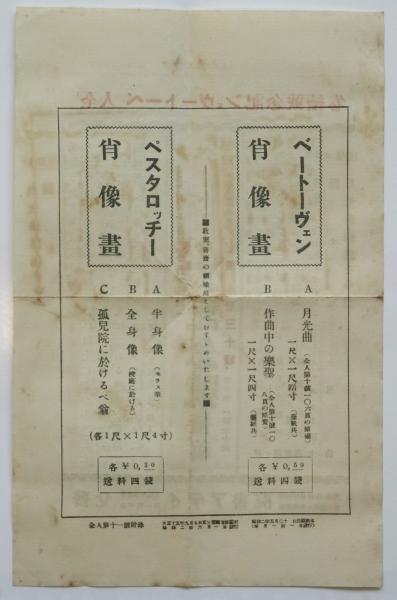 ベートーヴェン
肖像畫
A 月光曲(全人第十號一〇六頁の縮寫)
一尺×一尺四寸
B 作曲中の樂聖(全人第十號一〇八頁の縮寫)
一尺×一尺四寸
各¥0,50
送料四錢
■教室、書齋の額繪用としておすゝめいたします■
ペスタロッチー
肖像畫
A 半身像
B 全身像
C 孤兒院に於けるペ翁
(各1尺×1尺4寸)
各¥0,20
送料四錢
全人第十一號附錄